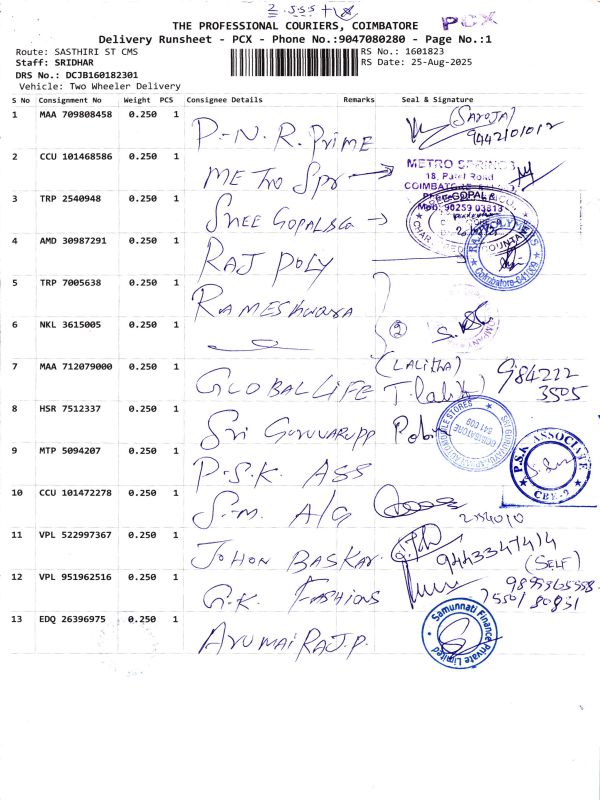 THE PROFESSIONAL COURIERS, COIMBATORE
PCX
Delivery Runsheet - PCX - Phone No.:9047080280 - Page No.:1
Route: SASTHIRI ST CMS
RS No.: 1601823
Staff: SRIDHAR
RS Date: 25-Aug-2025
DRS No.: DCJB160182301
Vehicle: Two Wheeler Delivery
S No Consignment No Weight PCS Consignee Details Remarks Seal & Signature
1 MAA 709808458 0.250 1 P.N.R. PRIME (SAROJA)
9442101012
2 CCU 101468586 0.250 1 METRO SPR METRO SPRINGS
18, Patel Road
COIMBATORE
3 TRP 2540948 0.250 1 SHREE GOPAL & Co
4 AMD 30987291 0.250 1 RAJ POLY
Coimbatore-641009
5 TRP 7005638 0.250 1 RAMESHWARA
6 NKL 3615005 0.250 1 2
7 MAA 712079000 0.250 1 GLOBAL LIFE (LALITHA)
T. Lalith
984222
3505
8 HSR 7512337 0.250 1 SRI GURUVARUPP
9 MTP 5094207 0.250 1 P.S.K. ASS P.S.K. ASSOCIATE
CBE-2
10 CCU 101472278 0.250 1 S.M. A/G
11 VPL 522997367 0.250 1 JOHON BASKAR 9443347414
(SELF)
12 VPL 951962516 0.250 1 G.K. FASHIONS
13 EDQ 26396975 0.250 1 ARUMAIRAJ.P. Samunnati Finance Private Limited